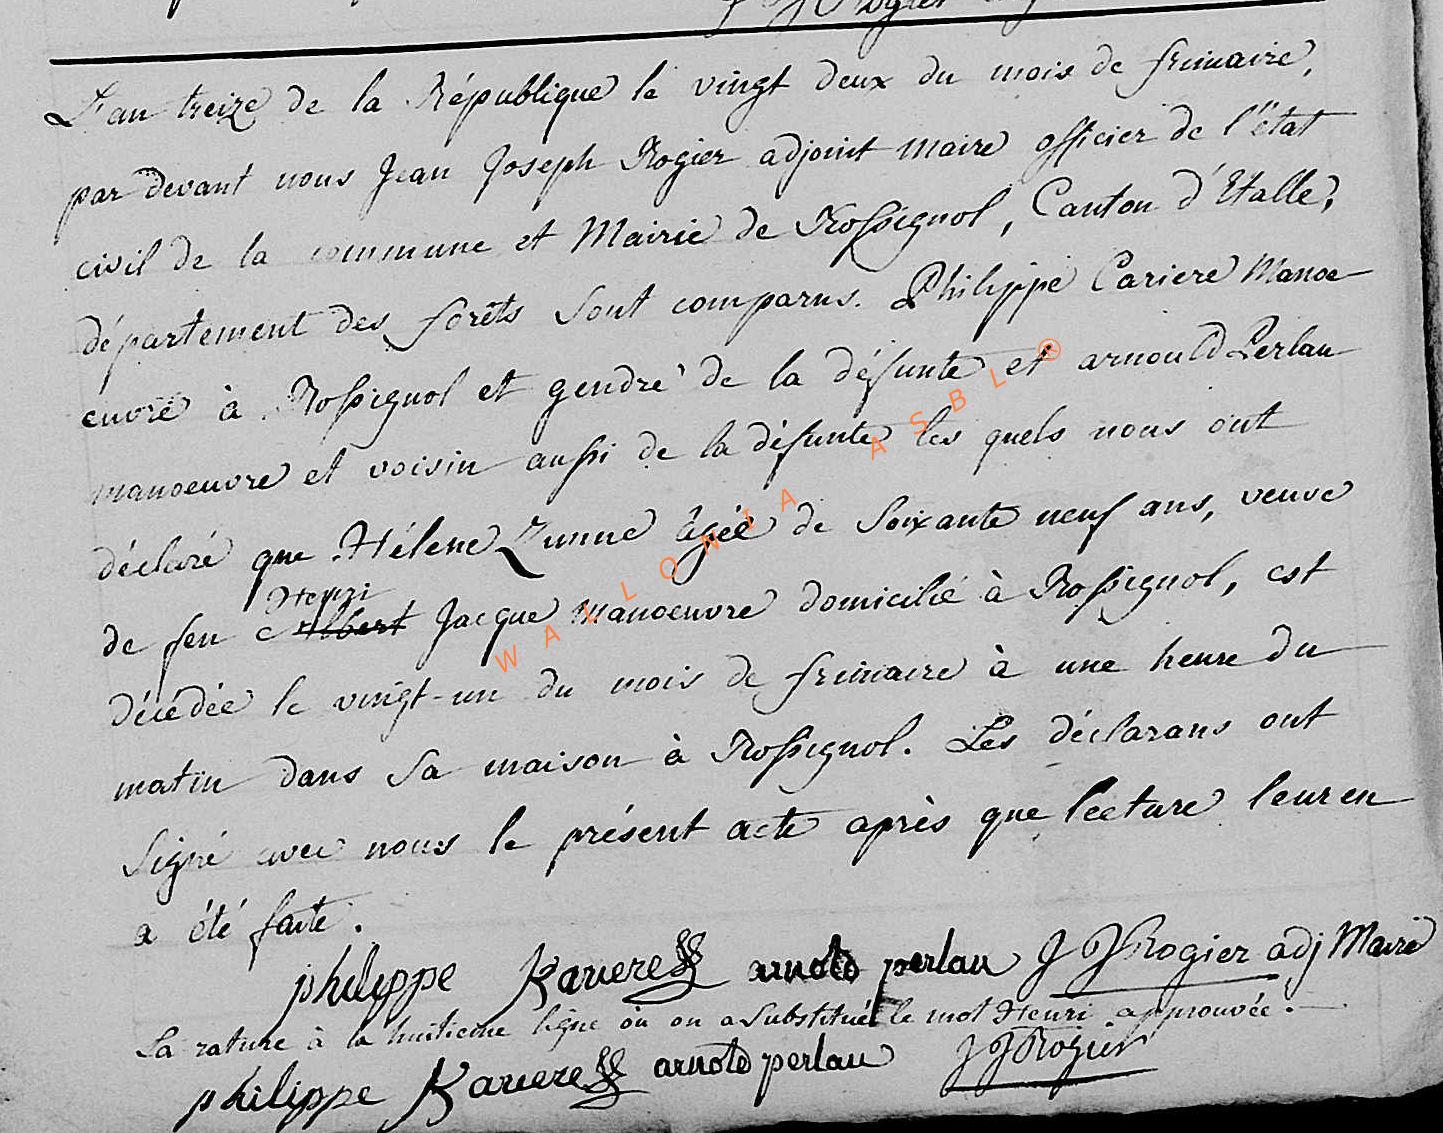 Rogier
L'an treize de la République le vingt deux du mois de frimaire,
par devant nous Jean Joseph Rogier adjoint maire officier de l'état
civil de la commune et Mairie de Rossignol, Canton d'Etalle,
département des forêts sont comparus. Philippe Cariere Manoe
euvre à Rossignol et gendre de la défunte et arnould Perlau
manoeuvre et voisin aussi de la défunte les quels nous ont
déclaré que Hélene Zunne âgée de Soixante neuf ans, veuve
Henri
de feu albert Jacque manoeuvre domicilié à Rossignol, est
décédée le vingt-un du mois de frimaire à une heure du
matin dans sa maison à Rossignol. Les déclarans ont
Signé avec nous le présent acte après que lecture leur en
a été faite.
philippe Kariere arnold perlau J J Rogier adj Maire
La rature à la huitieme ligne où on a Substitué le mot Henri approuvée.
philippe Kariere arnold perlau J J Rogier
WALLONIA ASBL ®